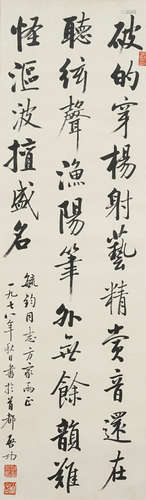 破的穿楊射藝精賞音還在
聽弦聲漁陽筆外無餘韻難
怪漚波擅盛名
毓鈞同志方家兩正
一九七八年秋日書於首都 啟功